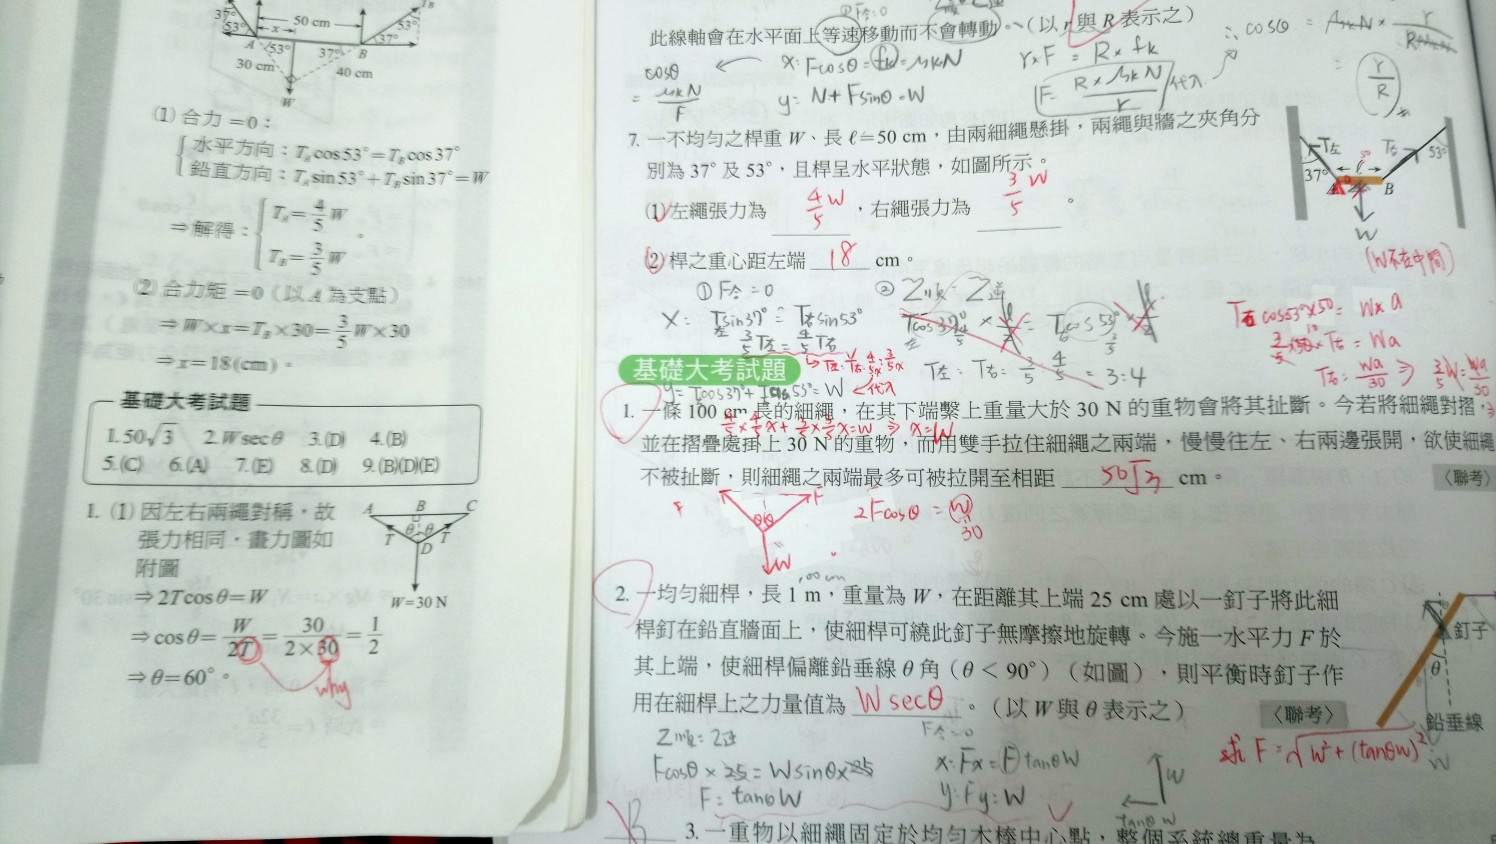 37°
53°
50 cm
x
53°
37°
A
53°
37°
B
30 cm
40 cm
W
(1) 合力 =0：
水平方向：T_A cos53°=T_B cos37°
鉛直方向：T_A sin53°+T_B sin37°=W
⇒解得：
T_A=4/5 W
T_B=3/5 W 。
(2) 合力矩 =0（以 A 為支點）
⇒W×x=T_B×30=3/5 W×30
⇒x=18(cm)。
基礎大考試題
1. 50√3 2. W secθ 3. (D) 4. (B)
5. (C) 6. (A) 7. (E) 8. (D) 9. (B)(D)(E)
1. (1) 因左右兩繩對稱，故
張力相同，畫力圖如
附圖
A B C
θ θ
T T
D
W=30 N
⇒2T cosθ=W
⇒cosθ=W/2T=30/(2×30)=1/2
⇒θ=60°。
why
此線軸會在水平面上等速移動而不會轉動。（以 r 與 R 表示之）
cosθ
= μkN/F
x: Fcosθ = fk = μkN
y: N+Fsinθ=W
r×F = R×fk
F= R×μkN/r 代入
∴ cosθ = μkN × r/RμkN
= r/R
7. 一不均勻之桿重 W、長 ℓ=50 cm，由兩細繩懸掛，兩繩與牆之夾角分
別為 37° 及 53°，且桿呈水平狀態，如圖所示。
(1) 左繩張力為 4/5 W，右繩張力為 3/5 W。
(2) 桿之重心距左端 18 cm。
T左 T右
37° 53°
A B
W
(W不在中間)
① F合=0
② Σ順=Σ逆
X: T左sin37°=T右sin53°
3/5 T左=4/5 T右
T左:T右=3/5:4/5=3:4
T右cos53°×50=W×a
3/5×50×T右=Wa
T右=Wa/30 ⇒ 3/5W=Wa/30
基礎大考試題
代入
4/5×4/5x+3/5×3/5x=W ⇒ x=W
1. 一條 100 cm 長的細繩，在其下端繫上重量大於 30 N 的重物會將其扯斷。今若將細繩對摺，
並在摺疊處掛上 30 N 的重物，而用雙手拉住細繩之兩端，慢慢往左、右兩邊張開，欲使細繩
不被扯斷，則細繩之兩端最多可被拉開至相距 50√3 cm。 〈聯考〉
F F
θ θ
W
2Fcosθ=W
30
100cm
2. 一均勻細桿，長 1 m，重量為 W，在距離其上端 25 cm 處以一釘子將此細
桿釘在鉛直牆面上，使細桿可繞此釘子無摩擦地旋轉。今施一水平力 F 於
其上端，使細桿偏離鉛垂線 θ 角（θ < 90°）（如圖），則平衡時釘子作
用在細桿上之力量值為 W secθ 。（以 W 與 θ 表示之） 〈聯考〉
釘子
θ
鉛垂線
W
F合=0
Σ順=Σ逆
Fcosθ×25=Wsinθ×25
F=tanθW
x: Fx=F=tanθW
y: Fy=W
W
tanθ W
或 F=√W²+(tanθW)²
B
3. 一重物以細繩固定於均勻木棒中心點，整個系統總重量為